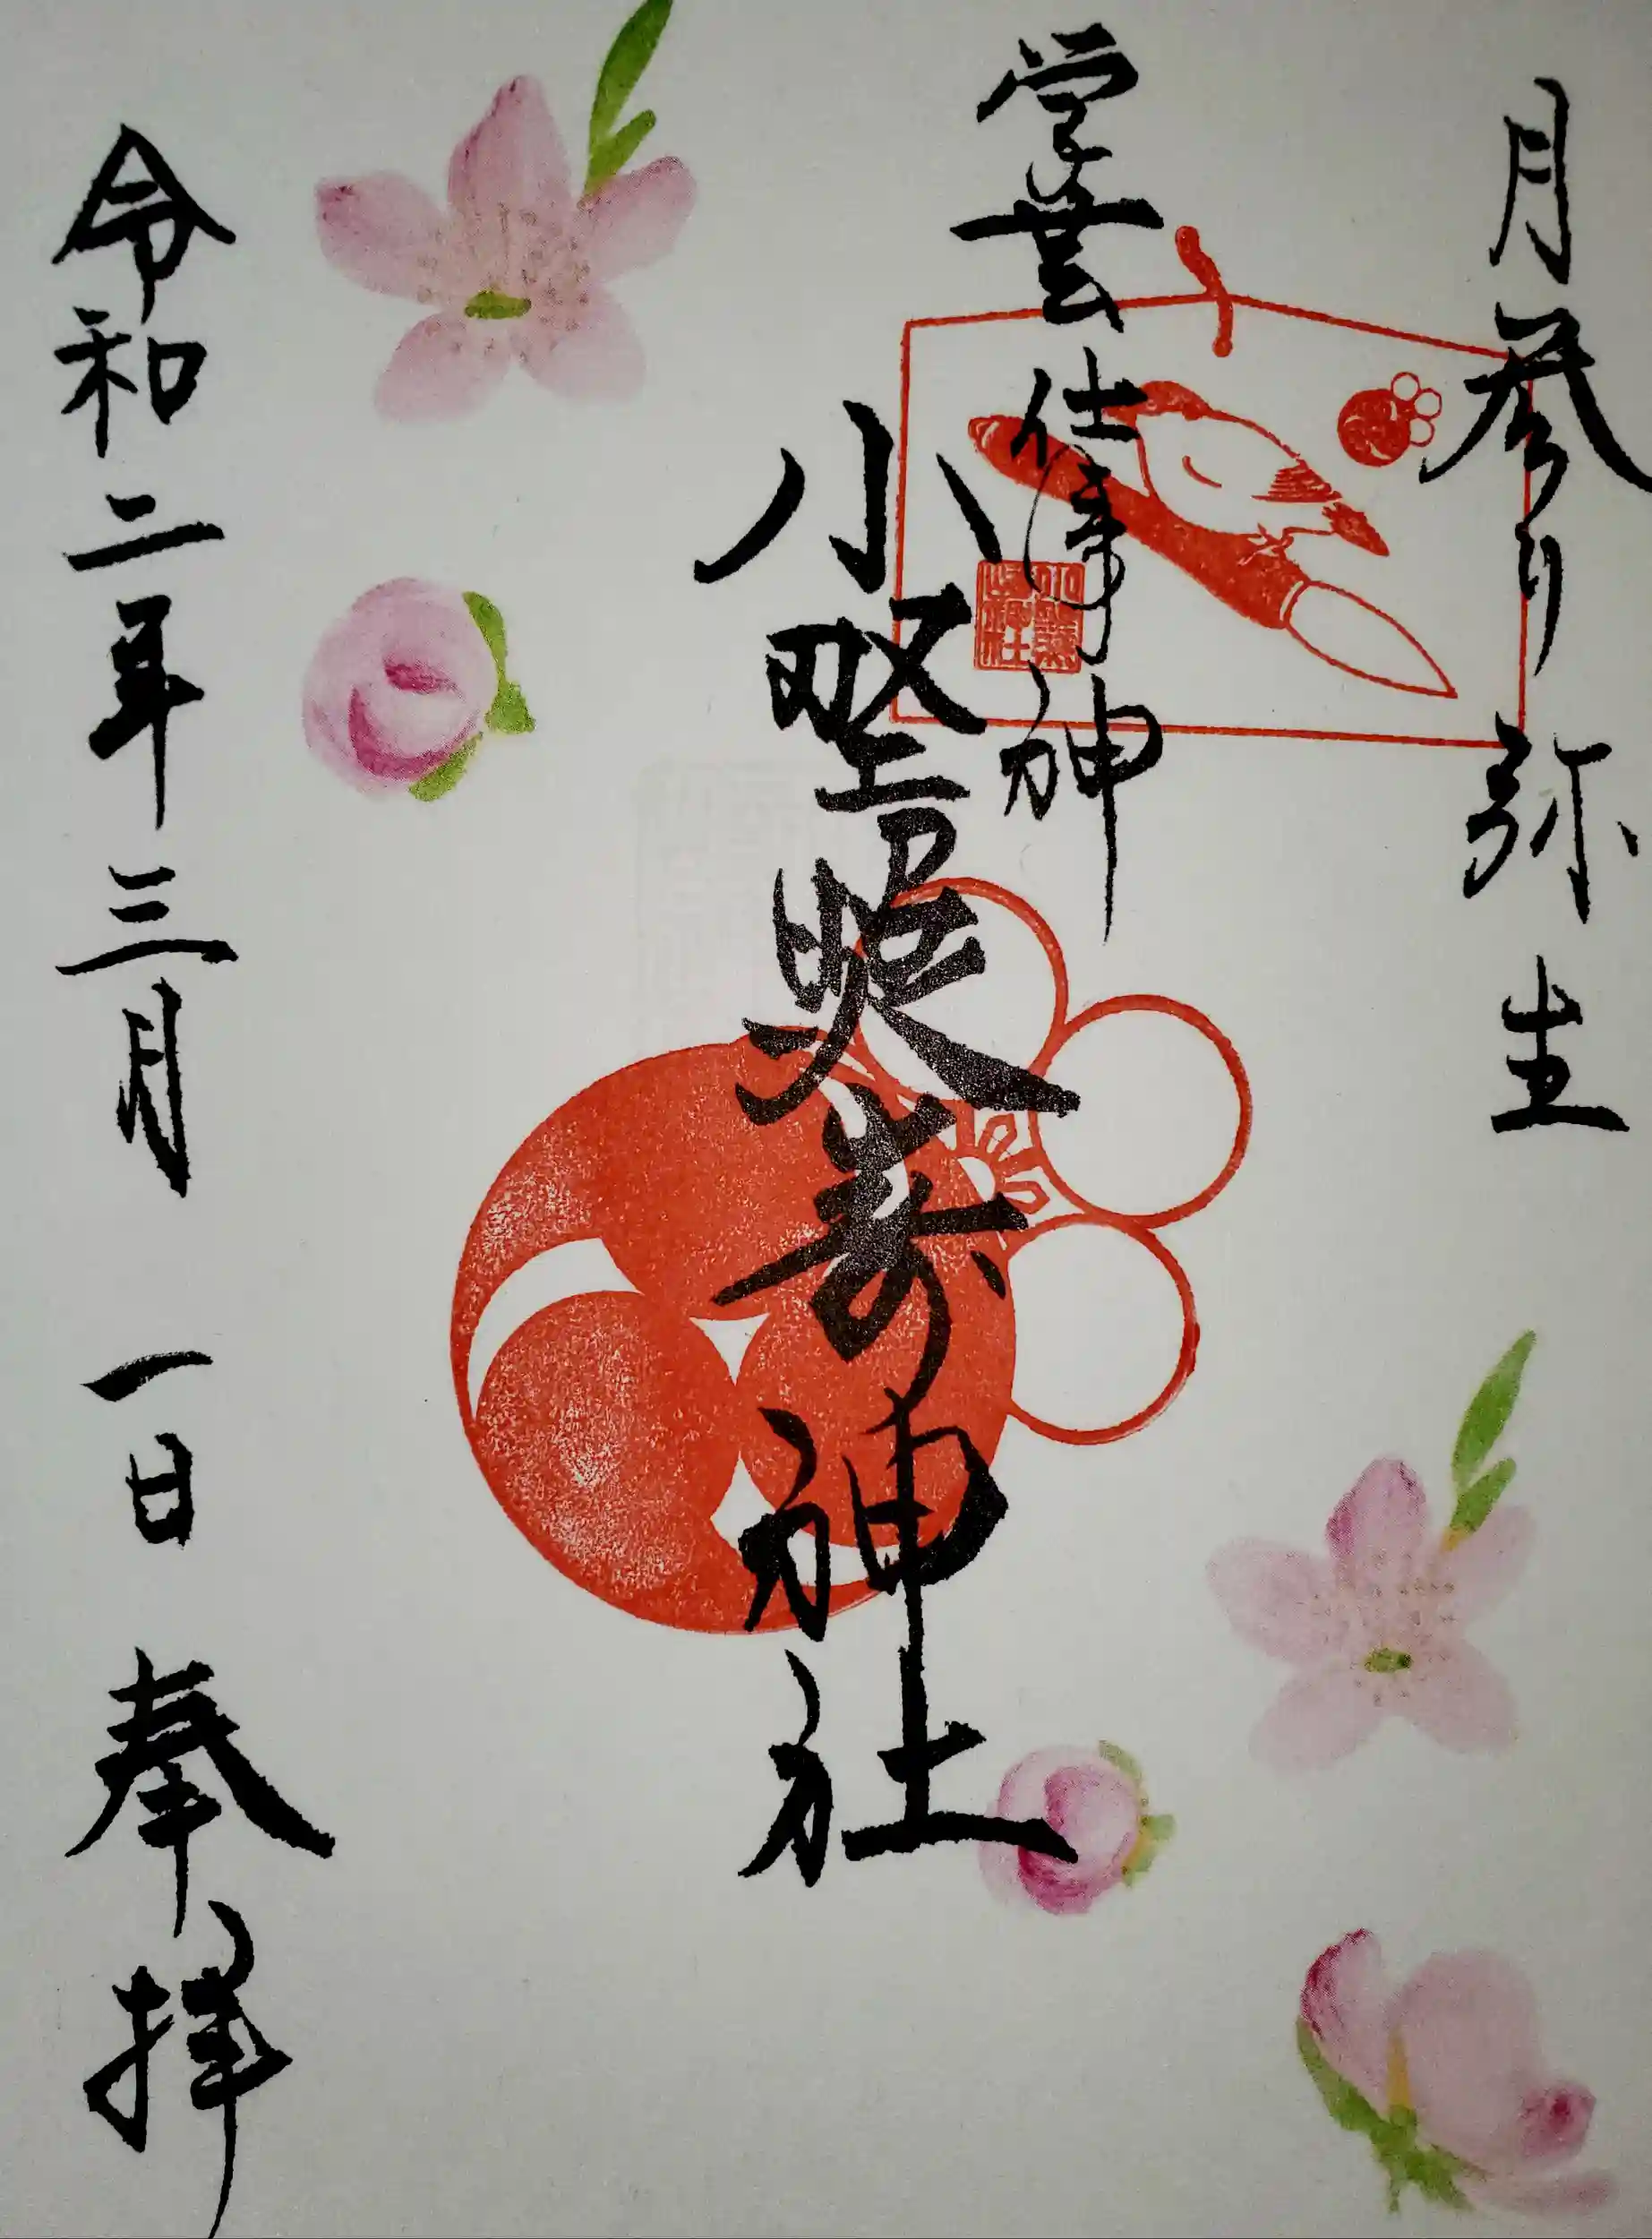 月参り 弥生
学芸 仕事神
小野照崎神社
小野照崎神社
令和二年三月 一日 奉拝